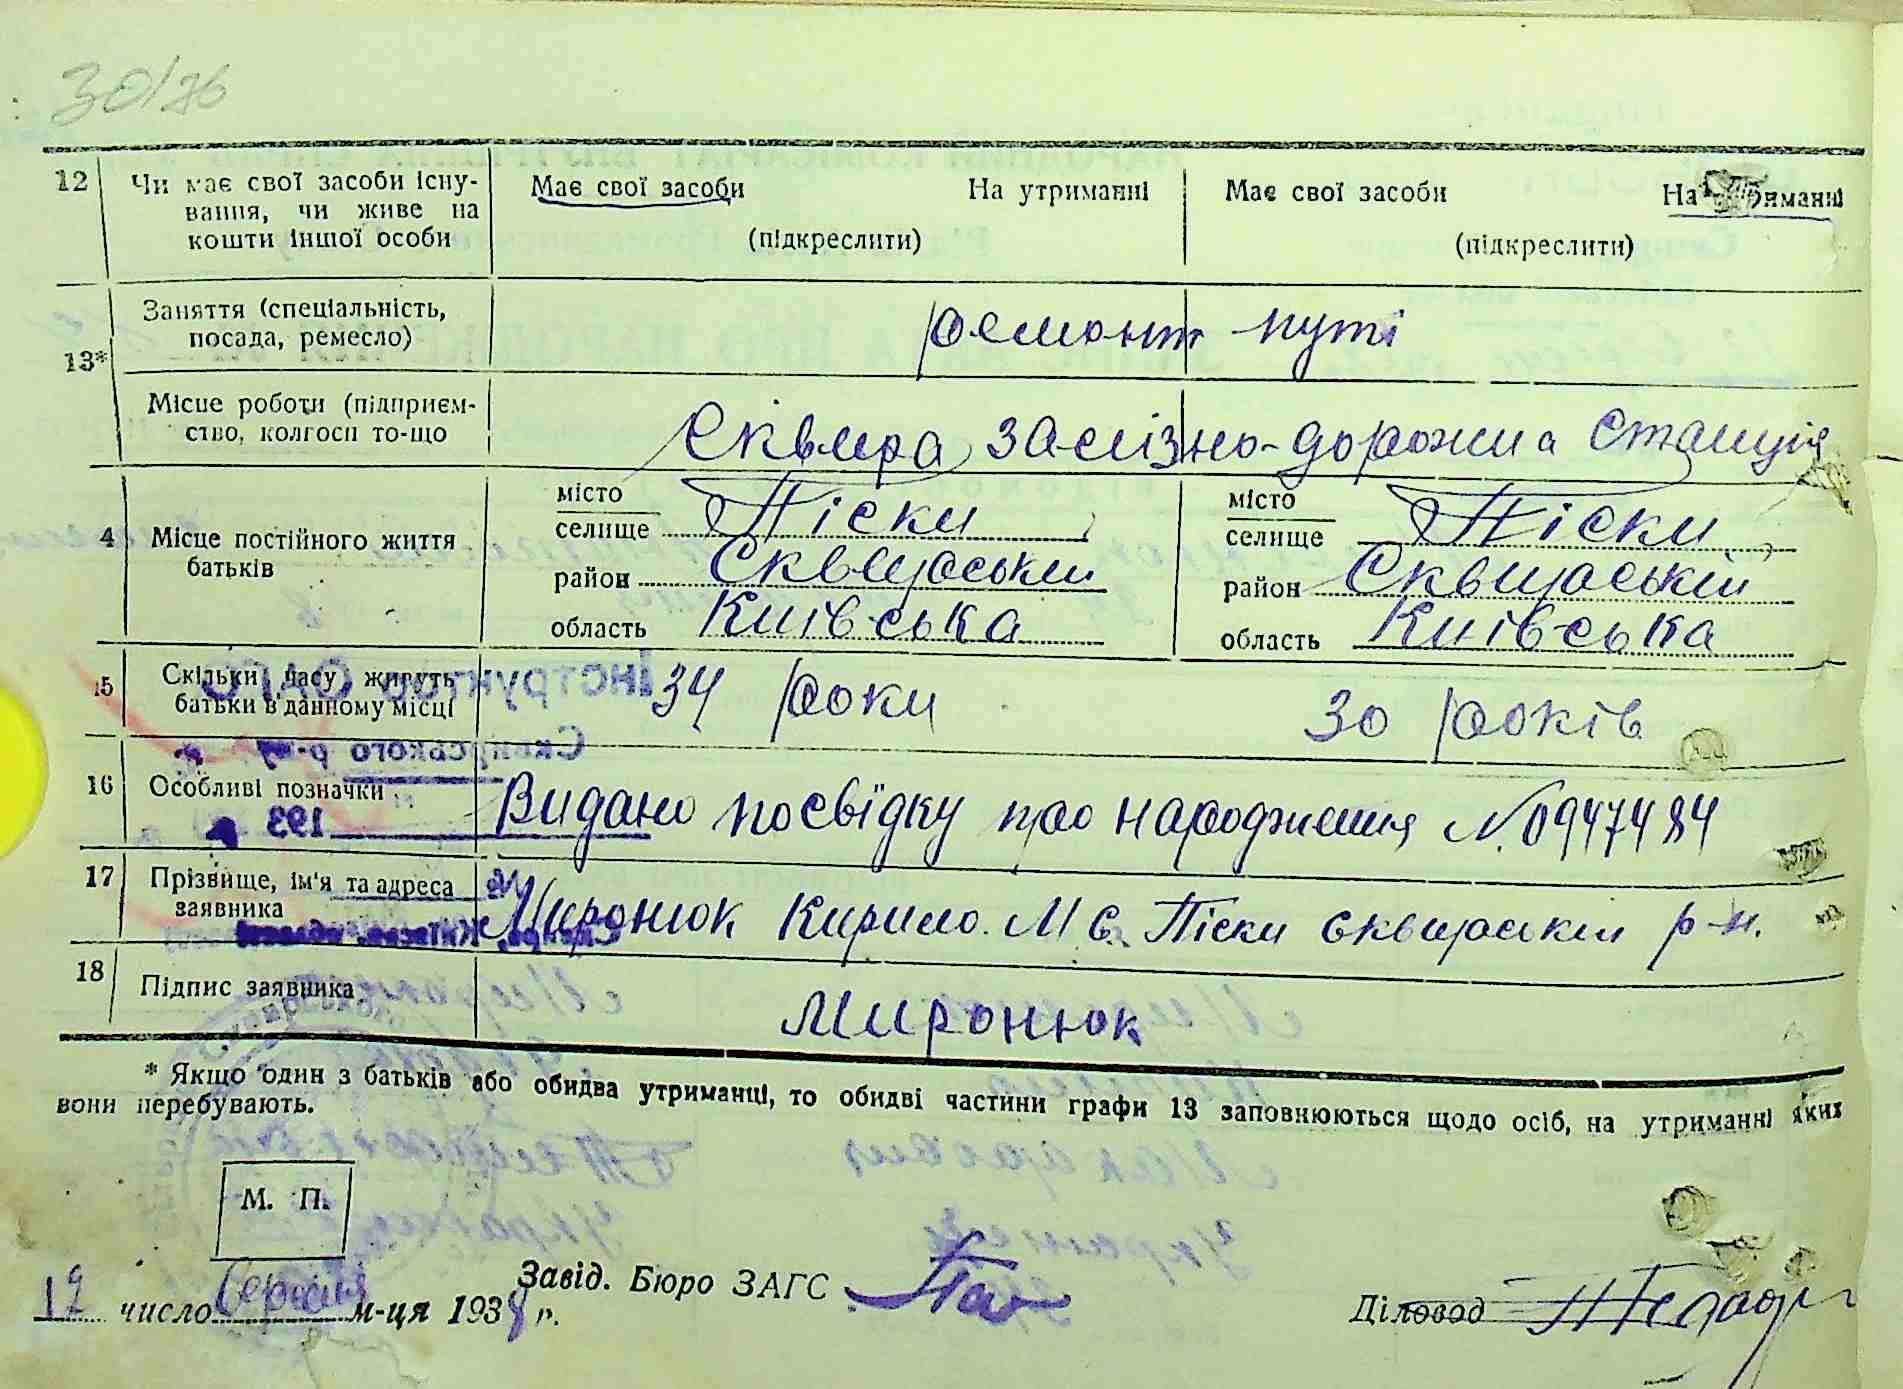 30/76
12 Чи має свої засоби існу-
вання, чи живе на
кошти іншої особи
Має свої засоби На утриманні
(підкреслити)
Має свої засоби На утриманні
(підкреслити)
13*
Заняття (спеціальність,
посада, ремесло)
ремонт путі
Місце роботи (підприєм-
ство, колгосп то-що
Сквира залізно-дорожна станція
4 Місце постійного життя
батьків
місто
селище Піски
район Сквирський
область Київська
місто
селище Піски
район Сквирській
область Київська
15 Скільки часу живуть
батьки в данному місці
34 роки 30 років
16 Особливі позначки
Видано посвідку про народження №0947484
17 Прізвище, ім'я та адреса
заявника
Миронюк Кирило. М с. Піски сквирськіл р-н.
18 Підпис заявника
Миронюк
* Якщо один з батьків або обидва утриманці, то обидві частини графи 13 заповнюються щодо осіб, на утриманні яких
вони перебувають.
М. П.
Завід. Бюро ЗАГС
Діловод
12 число серпня м-ця 1938 р.
Інструктор ОАГС
Сквирського р-ну
193